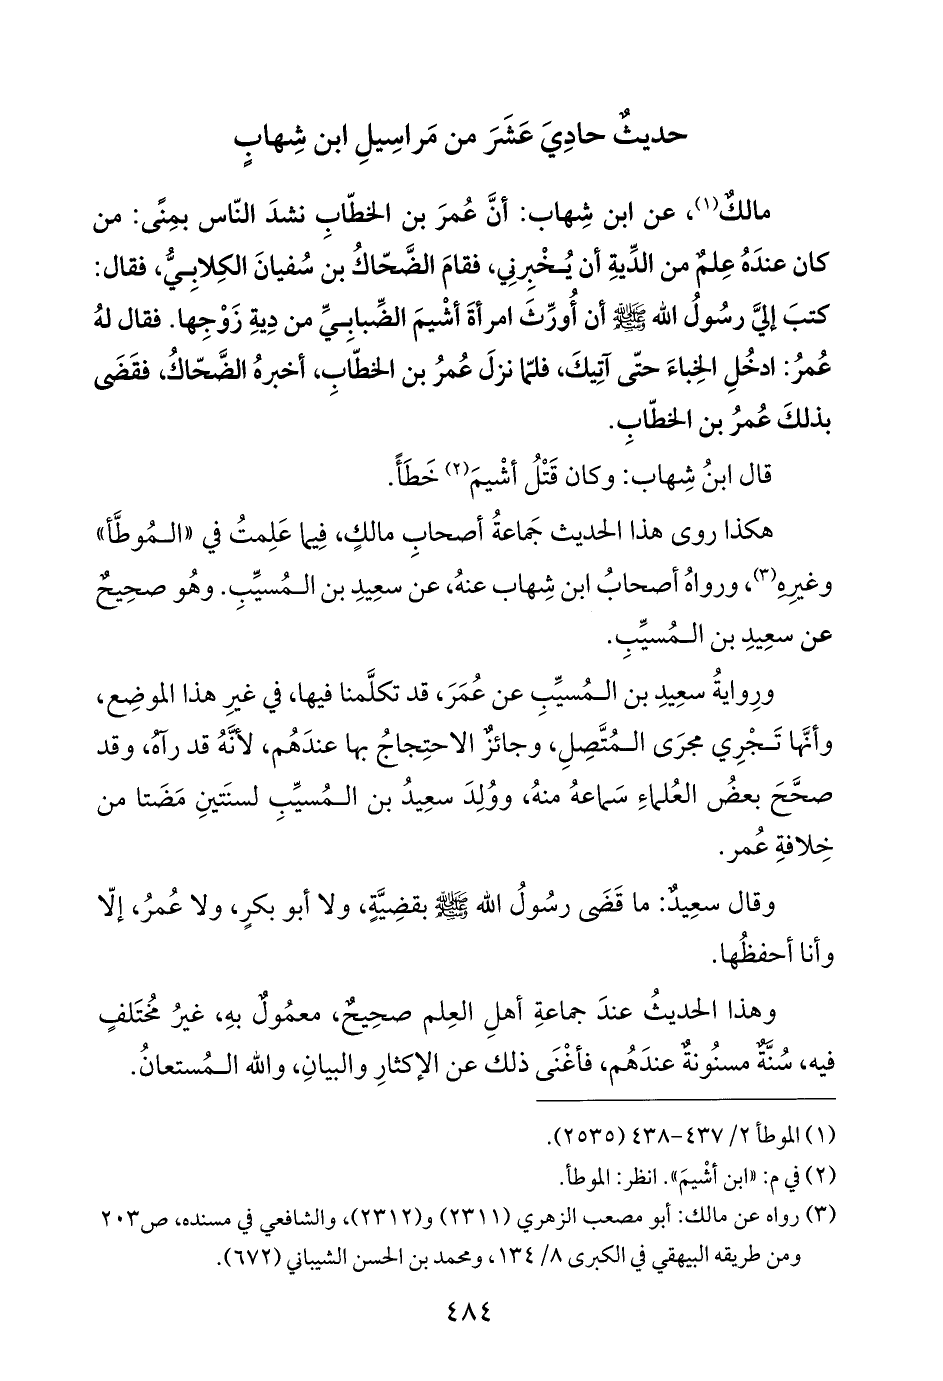 حديثٌ حادِيَ عَشَرَ من مَراسِيلِ ابن شِهابٍ
مالكٌ(١)، عن ابن شِهاب: أنَّ عُمرَ بن الخطّابِ نشدَ النّاس بمِنًى: من
كان عندَهُ عِلمٌ من الدِّيةِ أن يُـخْبِرنِي، فقامَ الضَّحّاكُ بن سُفيانَ الكِلابِـيُّ، فقال:
كتبَ إليَّ رسُولُ الله ﷺ أن أُورِّثَ امرأةَ أشْيمَ الضِّبابِـيِّ من دِيةِ زَوْجِها. فقال لهُ
عُمرُ: ادخُلِ الخِباءَ حتّى آتِيكَ، فلمّا نزلَ عُمرُ بن الخطّابِ، أخبرهُ الضَّحّاكُ، فقَضَى
بذلكَ عُمرُ بن الخطّابِ.
قال ابنُ شِهاب: وكان قَتْلُ أشْيمَ(٢) خَطَأً.
هكذا روى هذا الحديث جَماعةُ أصحابِ مالكٍ، فِيما عَلِمتُ في «الـمُوطَّأ»
وغيرِهِ(٣)، ورواهُ أصحابُ ابن شِهاب عنهُ، عن سعِيدِ بن الـمُسيِّبِ. وهُو صحِيحٌ
عن سعِيدِ بن الـمُسيِّبِ.
ورِوايةُ سعِيدِ بن الـمُسيِّبِ عن عُمَرَ، قد تكلَّمنا فيها، في غيرِ هذا الموضِع،
وأنَّها تَـجْرِي مجرَى الـمُتَّصِلِ، وجائزٌ الاحتِجاجُ بها عندَهُم، لأنَّهُ قد رآهُ، وقد
صحَّحَ بعضُ العُلماءِ سَماعهُ منهُ، ووُلِدَ سعِيدُ بن الـمُسيِّبِ لسنَتَينِ مَضَتا من
خِلافةِ عُمر.
وقال سعِيدٌ: ما قَضَى رسُولُ الله ﷺ بقضِيَّةٍ، ولا أبو بكرٍ، ولا عُمرُ، إلّا
وأنا أحفظُها.
وهذا الحديثُ عندَ جماعةِ أهلِ العِلم صحِيحٌ، معمُولٌ بهِ، غيرُ مُختَلفٍ
فيه، سُنَّةٌ مسنُونةٌ عندَهُم، فأغْنَى ذلك عن الإكثارِ والبيانِ، والله الـمُستعانُ.
(١) الموطأ ٢/ ٤٣٧-٤٣٨ (٢٥٣٥).
(٢) في م: «ابن أشْيمَ». انظر: الموطأ.
(٣) رواه عن مالك: أبو مصعب الزهري (٢٣١١) و(٢٣١٢)، والشافعي في مسنده، ص٢٠٣
ومن طريقه البيهقي في الكبرى ٨/ ١٣٤، ومحمد بن الحسن الشيباني (٦٧٢).
٤٨٤